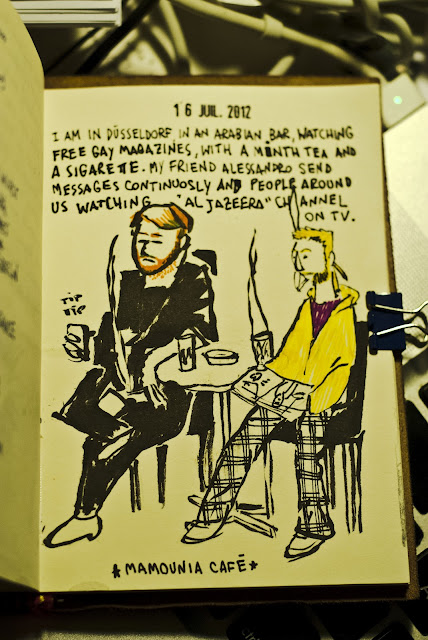 16 JUIL. 2012
I AM IN DÜSSELDORF IN AN ARABIAN BAR, WATCHING
FREE GAY MAGAZINES, WITH A MINTH TEA AND
A SIGARETTE. MY FRIEND ALESSANDRO SEND
MESSAGES CONTINUOSLY AND PEOPLE AROUND
US WATCHING "AL JAZEERA" CHANNEL
ON TV.
TIP
TIP
*MAMOUNIA CAFÉ*